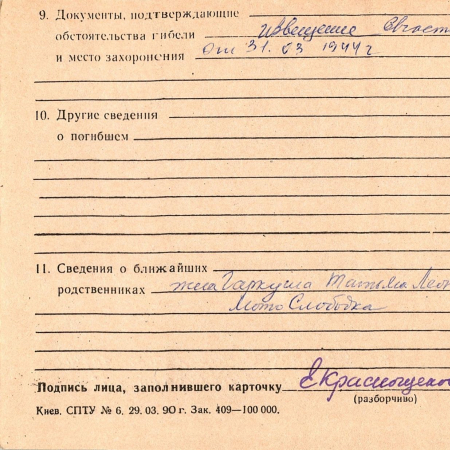 9. Документы, подтверждающие
обстоятельства гибели извещение
и место захоронения от 31.03 1944 г
10. Другие сведения
о погибшем
11. Сведения о ближайших
родственниках жена Гаркуша Татьяна
Мото Слободка
Подпись лица, заполнившего карточку
(разборчиво)
Киев. СПТУ № 6, 29. 03. 90 г. Зак. 409—100 000.